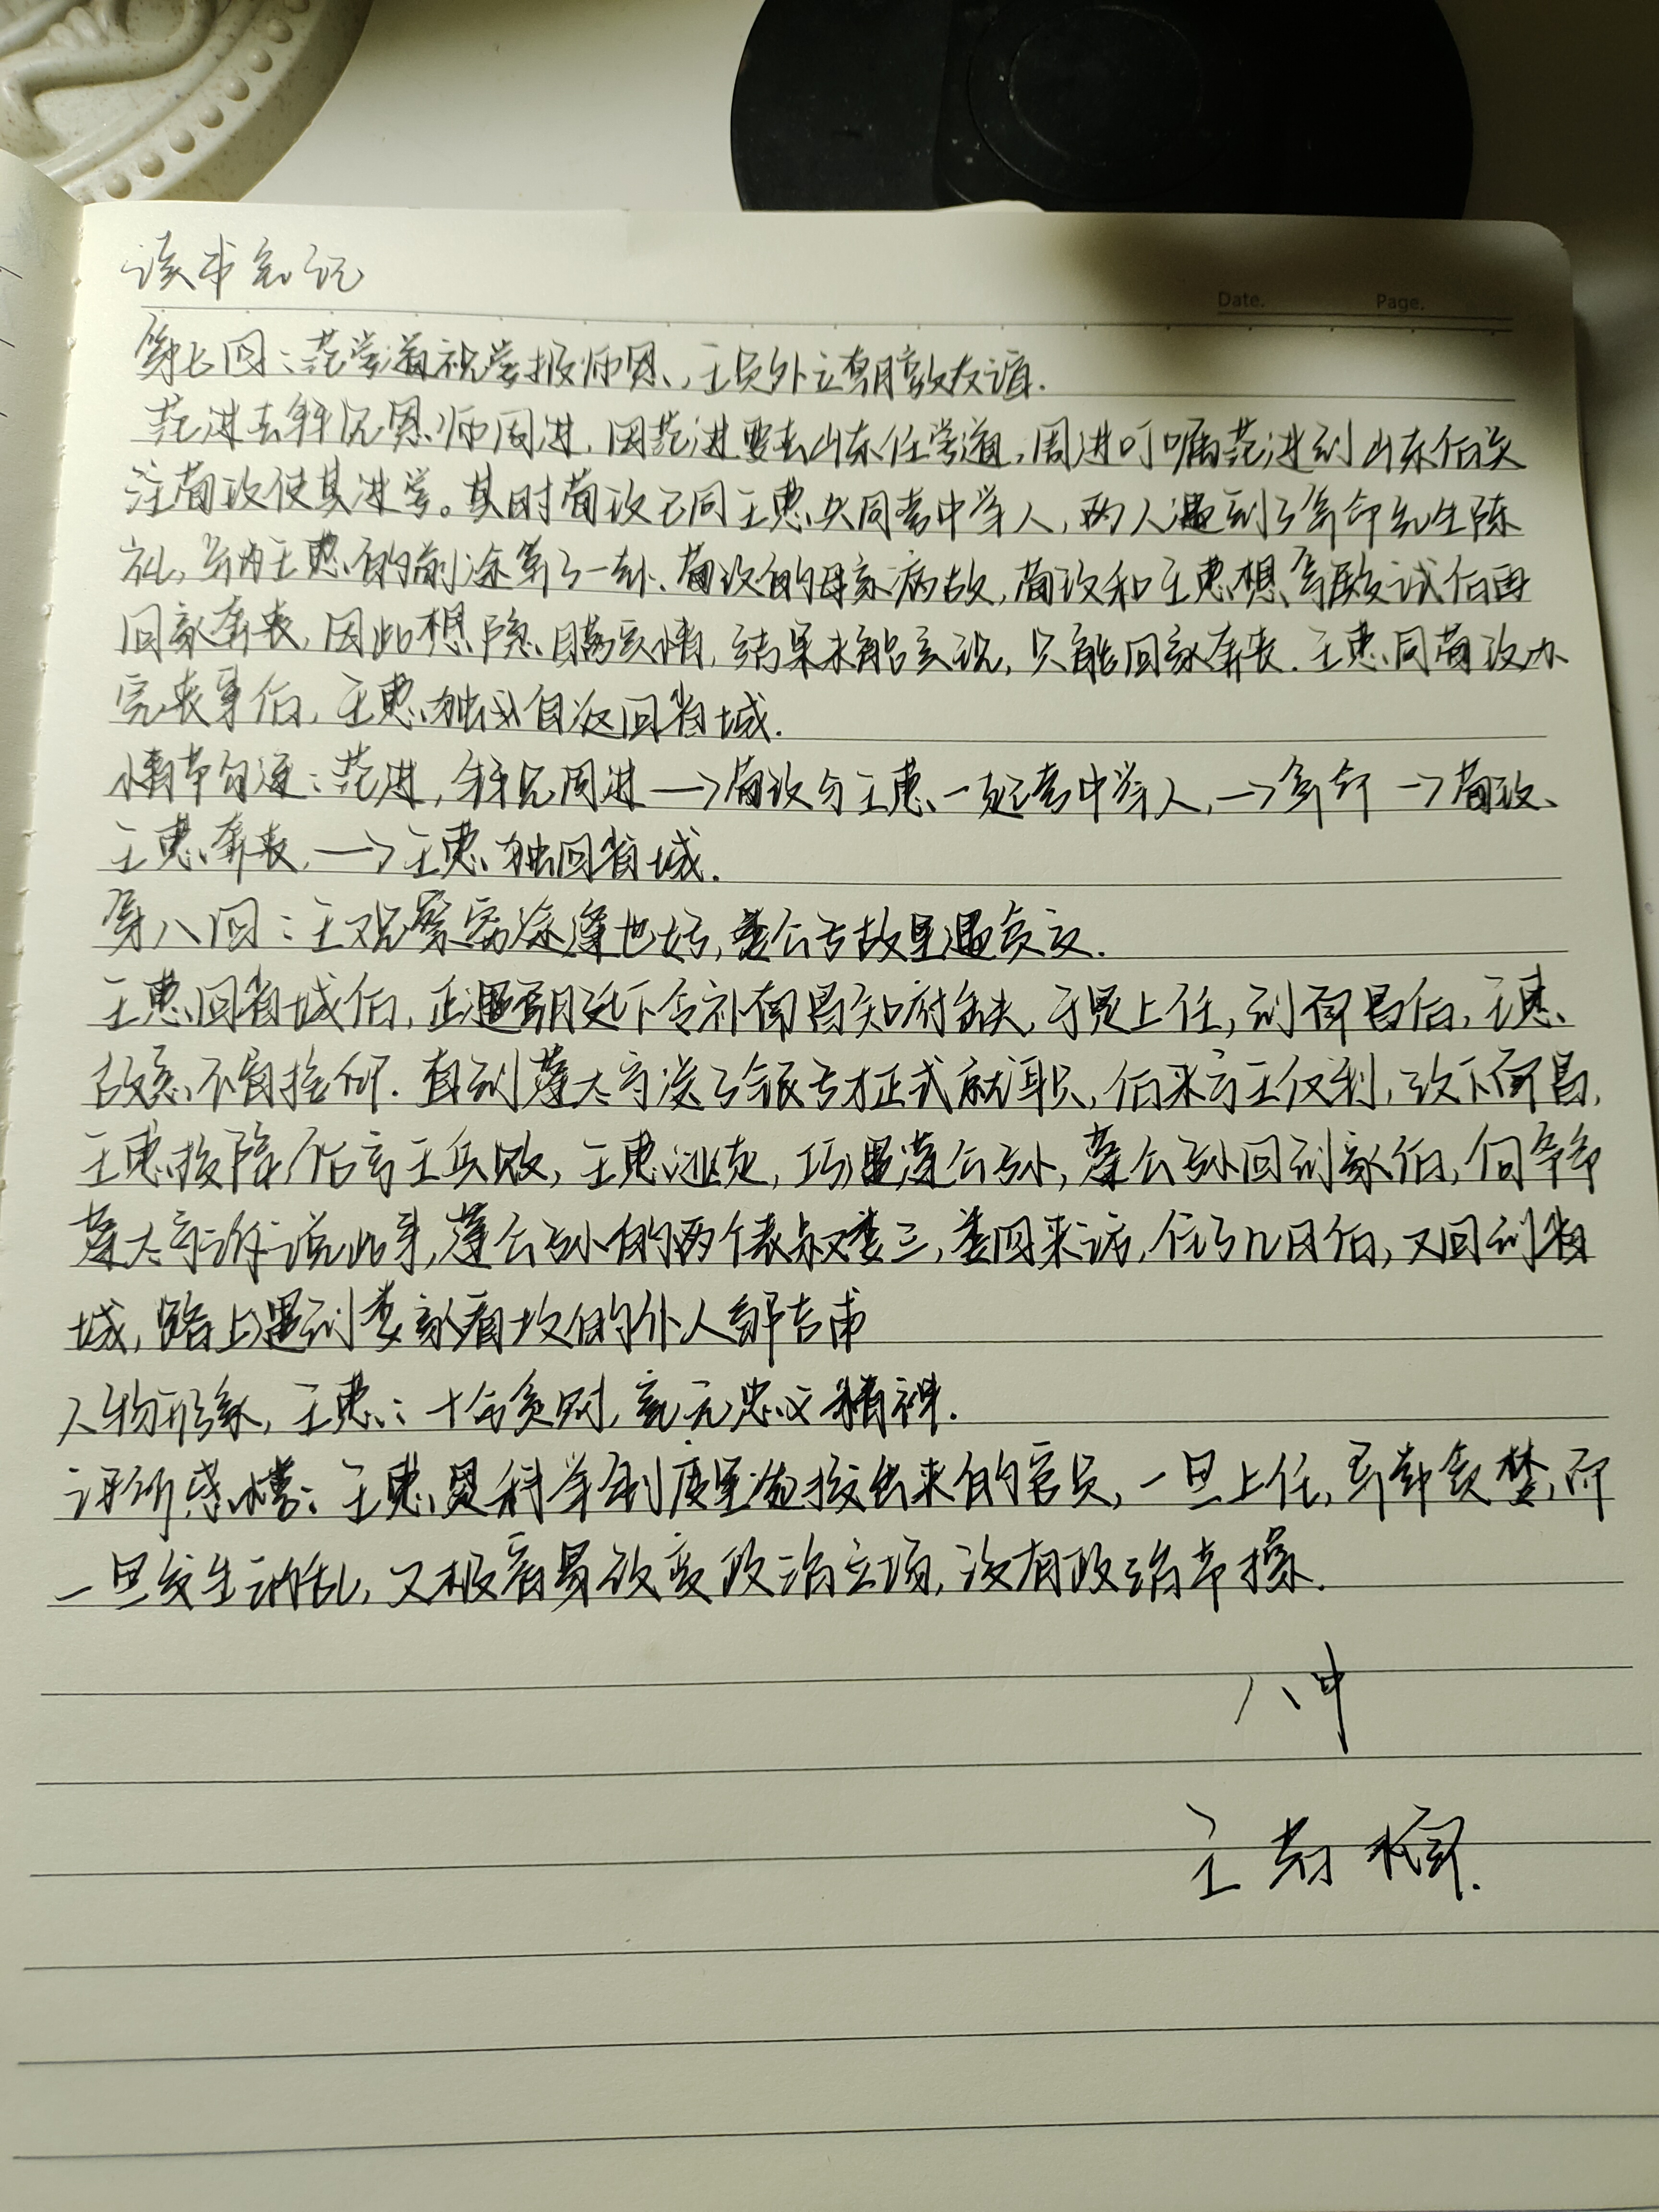 读书笔记
Date. Page.
第七回：范学道视学报师恩，王员外立朝敦友谊.
范进去拜见恩师周进，因范进要去山东任学道，周进叮嘱范进到山东后关
注荀玫使其进学。其时荀玫已同王惠共同考中举人，两人遇到了算命先生陈
礼，并为王惠的前途算了一卦.荀玫的母亲病故，荀玫和王惠想等殿试后再
回家奔丧，因此想隐瞒实情，结果未能实现，只能回家奔丧.王惠同荀玫办
完丧事后，王惠独自返回省城.
情节勾连：范进，拜见周进→荀玫与王惠一起考中举人，→算命→荀玫、
王惠奔丧，→王惠独回省城.
第八回：王观察穷途逢世好，娄公子故里遇贫交.
王惠回省城后，正遇朝廷下令补南昌知府缺，于是上任，到南昌后，王惠
故意不肯接印.直到蘧太守凑了银子才正式就职，后来宁王反判，攻下南昌，
王惠投降，后宁王兵败，王惠逃走，巧遇蘧公孙，蘧公孙回到家后，向爷爷
蘧太守诉说此事，蘧公孙的两个表叔娄三，娄四来访，住了几日后，又回到省
城，路上遇到娄家看坟的仆人邹吉甫
人物形象，王惠：十分贪财，毫无忠义精神.
读所感悟：王惠是科举制度里选拔出来的官员，一旦上任，即却贪婪，而
一旦发生动乱，又极容易改变政治立场，没有政治节操.
八中